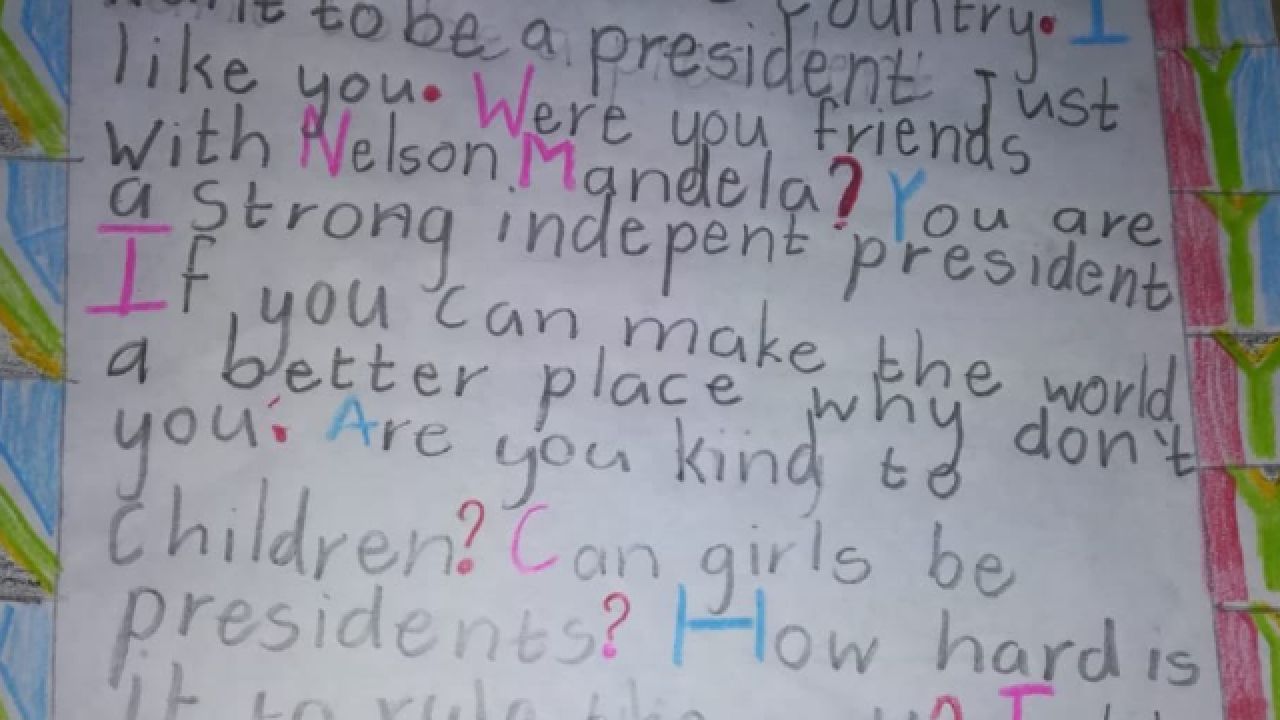 to be a president Just
like you. Were you friends
with Nelson Mandela? You are
a strong indepent president
If you can make the world
a better place why don't
you. Are you kind to
children? Can girls be
presidents? How hard is
it to rule the